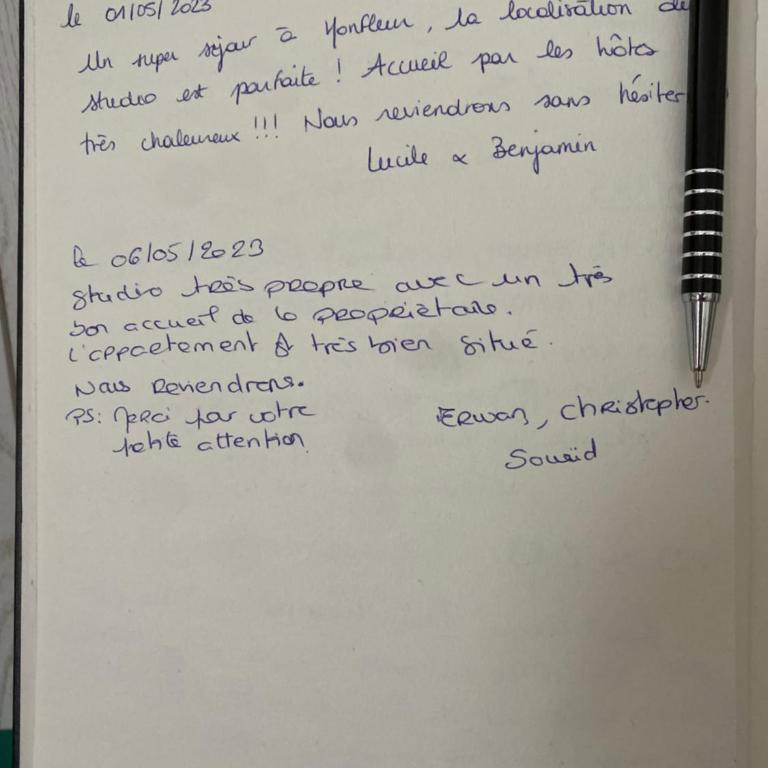 le 01/05/2023
Un super séjour à Honfleur, la localisation de
studio est parfaite ! Accueil par les hôtes
très chaleureux !!! Nous reviendrons sans hésiter
Lucile & Benjamin
le 06/05/2023
Studio très propre avec un très
bon accueil de la propriétaire.
L'appartement & très bien situé.
Nous Reviendrons.
PS: Merci pour votre
petite attention
ERWAN, Christopher.
Souaïd